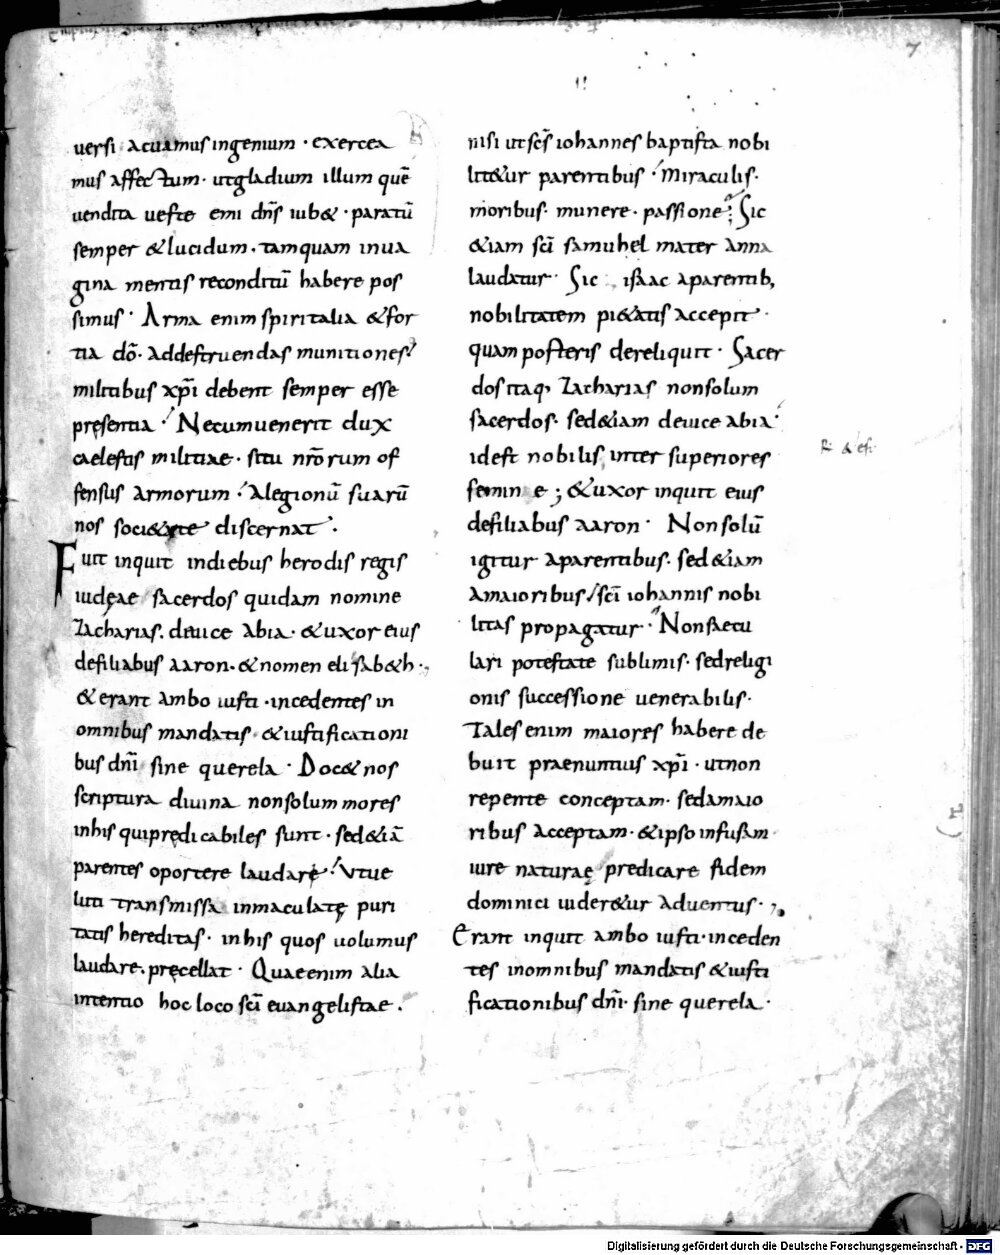 7
uersi acuamus ingenium · exercea
mus affectum · ut gladium illum quē
uendita ueste emi dn̄s iub& · paratū
semper & lucidum · tamquam in ua
gina mentis reconditū habere pos
simus · Arma enim spiritalia & for
tia dō · ad destruendas munitiones
militibus xp̄i debent semper esse
presentia · Ne cum uenerit dux
caelestis militiae · situ nr̄orum of
fensus armorum · a legionū suarū
nos soci&ate discernat ·
Fuit inquit in diebus herodis regis
iudęae sacerdos quidam nomine
Zacharias · de uice abia · & uxor eius
de filiabus aaron · & nomen elisab&h ·
& erant ambo iusti · incedentes in
omnibus mandatis · & iustificationi
bus dn̄i sine querela · Doc& nos
scriptura diuina non solum mores
in his qui prędicabiles sunt · sed &iā
parentes oportere laudare · Vt ue
luti transmissa inmaculatę puri
tatis hereditas · in his quos uolumus
laudare · pręcellat · Quae enim alia
intentio hoc loco sc̄i euangelistae ·
nisi ut sc̄s iohannes baptista nobi
lit&ur parentibus · Miraculis ·
moribus · munere · passione ; Sic
&iam sc̄i samuhel mater anna
laudatur · Sic isaac a parentib,
nobilitatem pi&atis accepit ·
quam posteris dereliquit · Sacer
dos itaq, Zacharias non solum
sacerdos · sed &iam de uice abia ·
id est nobilis inter superiores
femin e ; & uxor inquit eius
de filiabus aaron · Non solū
igitur a parentibus · sed &iam
a maioribus sc̄i iohannis nobi
litas propagatur · Non saecu
lari potestate sublimis · sed religi
onis successione uenerabilis ·
Tales enim maiores habere de
buit praenuntius xp̄i · ut non
repente conceptam · sed a maio
ribus acceptam · & ipso infusam
iure naturae predicare fidem
dominici uider&ur aduentus ·
Erant inquit ambo iusti · inceden
tes in omnibus mandatis & iusti
ficationibus dn̄i · sine querela ·
Digitalisierung gefördert durch die Deutsche Forschungsgemeinschaft - DFG